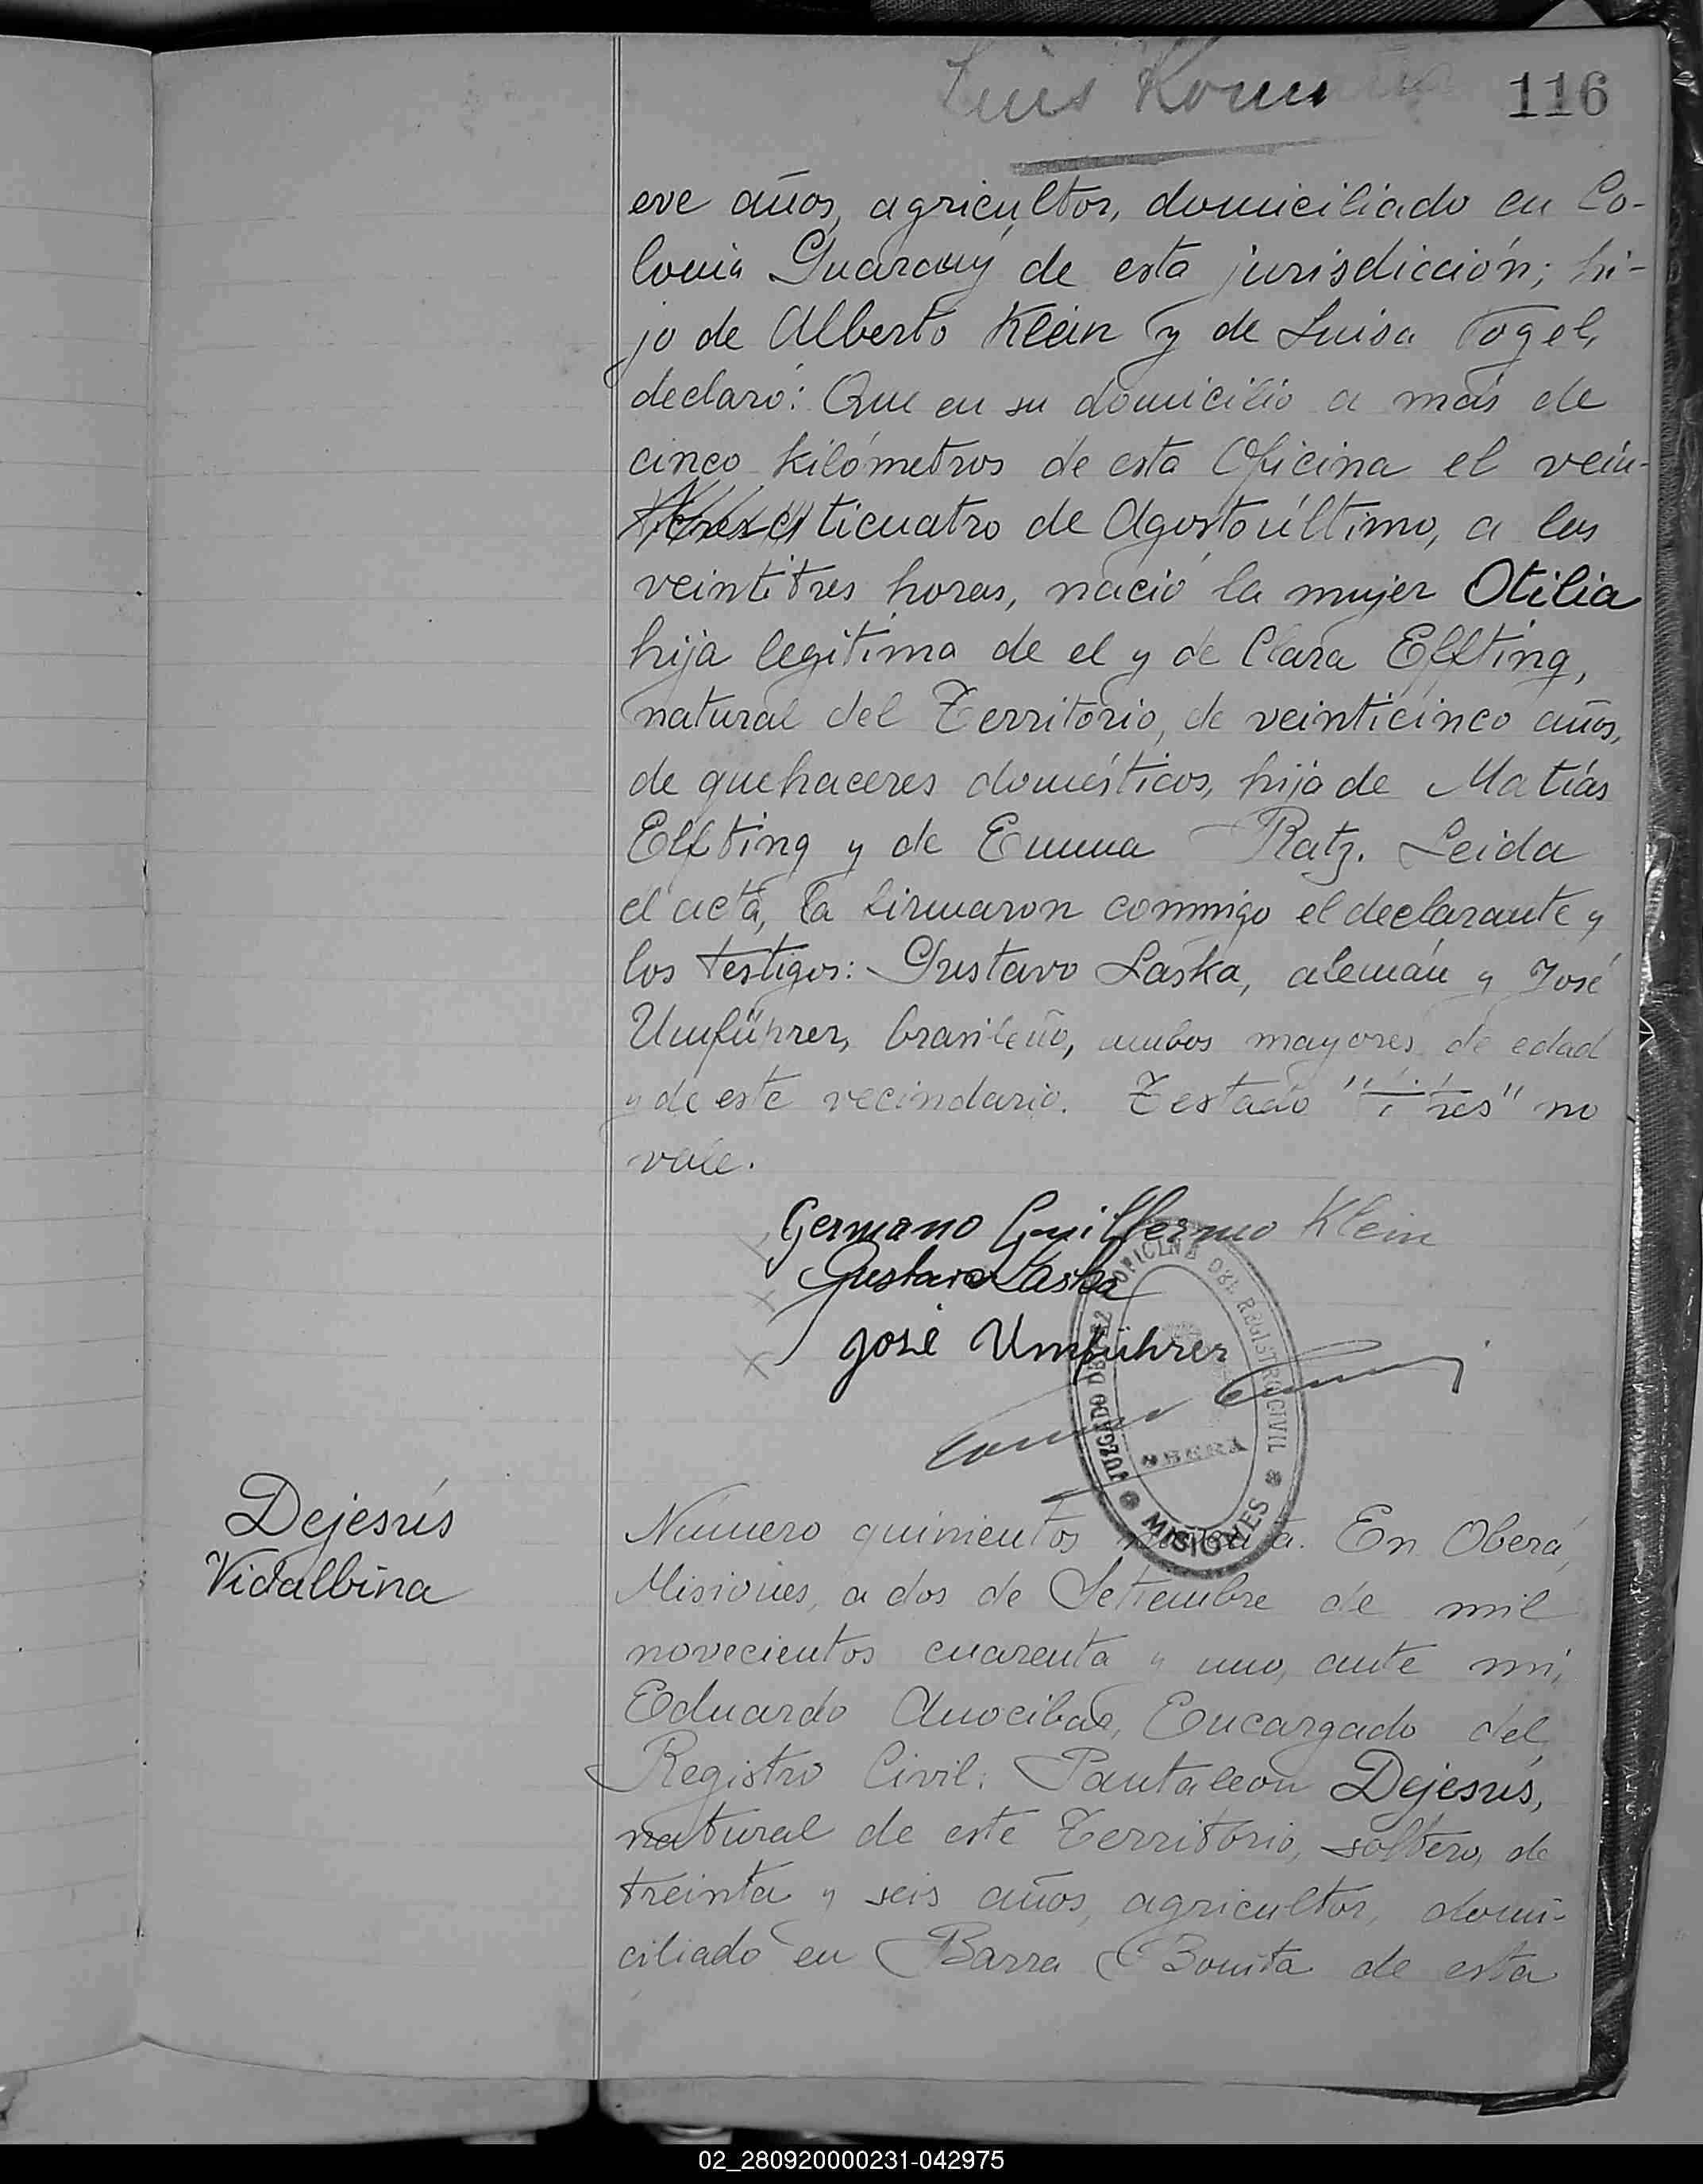 Luis
116
eve años, agricultor, domiciliado en Co-
lonia Guarany de esta jurisdicción; hi-
jo de Alberto Klein y de Luisa Vogel,
declaró: Que en su domicilio a más de
cinco kilómetros de esta Oficina el vein-
ticuatro de Agosto último, a las
veintitres horas, nació la mujer Otilia
hija legítima de el y de Clara Elfting,
natural del Territorio, de veinticinco años,
de quehaceres domésticos, hija de Matías
Elfting y de Emma Ratz. Leida
el acta, la firmaron conmigo el declarante y
los testigos: Gustavo Laska, alemán y José
Umführer, brasileño, ambos mayores de edad
y de este vecindario. Testado "titres" no
vale.
Germano Guillermo Klein
Gustavo Laska
José Umführer
JUZGADO DE PAZ OFICINA DEL REGISTRO CIVIL
OBERA
MISIONES
Dejesús
Vidalbina
Número quinientos. En Oberá,
Misiones, a dos de Setiembre de mil
novecientos cuarenta y uno, ante mi,
Eduardo Encargado del
Registro Civil: Pantaleon Dejesús,
natural de este Territorio, soltero, de
treinta y seis años, agricultor, domi-
ciliado en Barra Bonita de esta
02_280920000231-042975